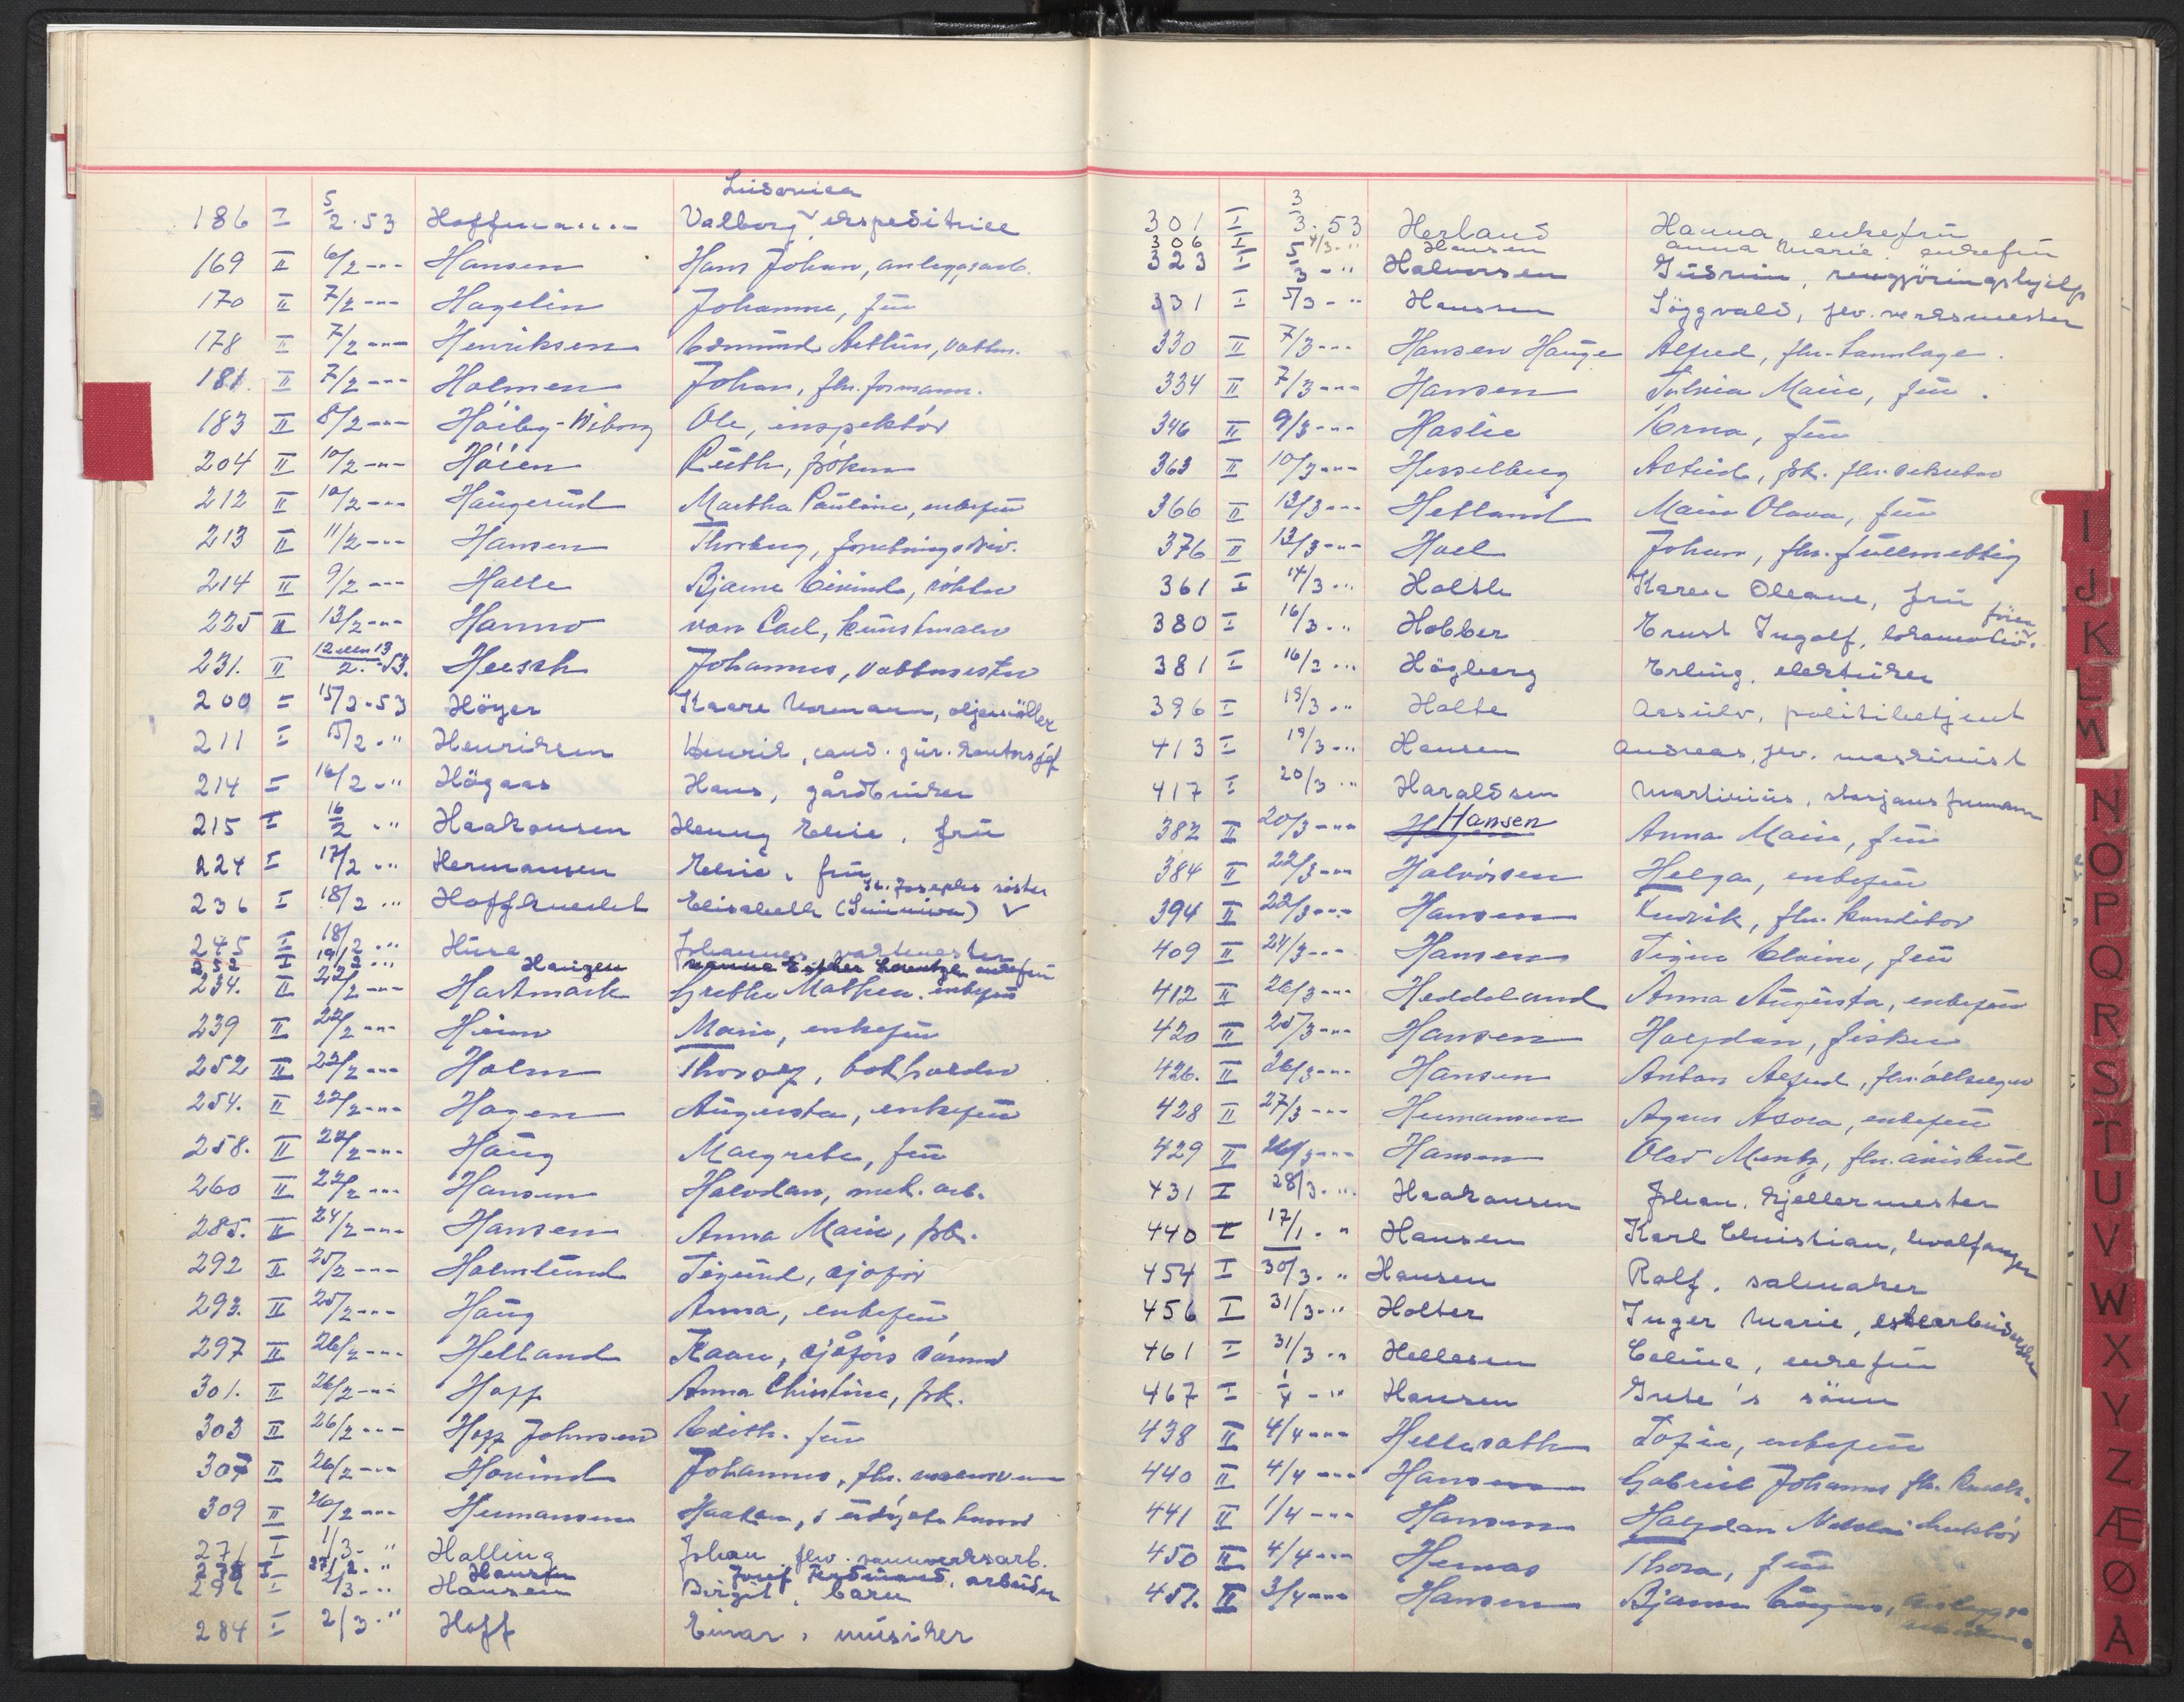 Luisenica
186 I 5/2.53 Hoffmann Valborg, ekspeditrice
169 II 6/2 -"- Hansen Hans Johan, anleggsarb.
170 II 7/2 -"- Hagelin Johanne, frü
178 II 7/2 -"- Henriksen Edmund Arthur, vaktm.
181. II 7/2 -"- Holmen Johan, fhv. formann.
183 II 8/2 -"- Höiby-Wiborg Ole, inspektör
204 II 10/2 -"- Höien Rüth, fröken
212 II 10/2 -"- Haugerud Martha Pauline, enkefrü
213 II 11/2 -"- Hansen Thorborg, forretningsdriv.
214 II 9/2 -"- Halle Bjarne Eivind,
225 II 13/2 -"- Hanno von Carl, kunstmaler
231. II 12 eller 13/2.-53. Heesch Johannes, vaktmester
200 I 15/2.53 Höyer Kaare Normann,
211 I 15/2 ." Henriksen Henrik, cand. jür. kontorsjef
214 I 16/2 ." Högaas Hans, gårdbruker
215 I 16/2 ." Haakonsen Henny Elvie, frü
224 I 17/2 ." Hermansen Elvie, frü
St. Josephs söster
236 I 18/2 ." Hoffknecht Elisabeth (Sunniva) V
245 I 18/2 ." Hüse Johannes, vaktmester
252 I 19/2 ." Haugen Nanna Esther Lorentze, enkefrü
234. II 22/2 -"- Hartmark Grethe Mathea, enkefrü
239 II 22/2 -"- Heim Marie, enkefrü
252 II 22/2 -"- Holm Thorolf, bokholder
254. II 22/2 -"- Hagen Augusta, enkefrü
258. II 22/2 -"- Haug Margrethe, frü
260 II 22/2 -"- Hansen Halvdan, mek. arb.
285. II 24/2 -"- Hansen Anna Marie, frk.
292 II 25/2 -"- Holmlund Sigurd, sjåför
293. II 25/2 -"- Haug Anna, enkefrü
297 II 26/2 -"- Helland Kaare, sjåförs sönn
301. II 26/2 -"- Hopp Anna Christine, frk.
303 II 26/2 -"- Hopp Johnsen Edith, frü
307 II 26/2 -"- Hovind Johannes, fhv.
309 II 26/2 -"- Hermansen Haakon,
276 I 1/3 ." Halling Johan, fhv. vannverksarb.
278 I 27/2 ." Hansen Josef Ferdinand, arbeider
296 I 2/3 ." Hansen Birgit, barn
284 I 2/3 ." Hoff Einar, müsiker
301 I 3/3.53 Herland Hanna, enkefrü
306 I 4/3 ." Hansen Anna Marie, enkefrü
323 I 5/3 ." Halvorsen Güdrün, rengjöringshjelp
331 I 5/3 ." Hansen Siggvald, fev. verksmester
330 II 7/3 -"- Hansen Hauge Alfred, fhv. tannlæge.
334 II 7/3 -"- Hansen Sylvia Marie, frü.
346 II 9/3 -"- Haslie Erna, frü
363 II 10/3 -"- Hesselberg Astrid, frk. fhv. sekretær
366 II 12/3 -"- Hetland Marie Olava, frü
376 II 13/3 -"- Hoel Johan, fhv. füllmektig
361 I 14/3 ." Holth Karen Oleane, frü
380 I 16/3 ." Hobber Ernst Ingolf, lokomotiv-
förer
381 I 16/3 ." Högberg Erling, elektriker
396 I 19/3 ." Holte Aasulv, politibetjent
413 I 19/3 ." Hansen Andreas, fev. maskinist
417 I 20/3 ." Haraldsen Martinius, stasjonsformann
382 II 20/3 -"- Hansen Anna Marie, frü
384 II 22/3 -"- Halvorsen Helga, enkefrü
394 II 22/3 -"- Hansen Fredrik, fhv. konditor
409 II 24/3 -"- Hansen Signe Elvine, frü
412 II 26/3 -"- Heddeland Anna Augusta, enkefrü
420 II 25/3 -"- Hansen Halfdan, fisker
426. II 26/3 -"- Hansen Anton Alfred, fhv.
428 II 27/3 -"- Hermansen Agnes Asora, enkefrü
429 II 26/3 -"- Hansen Olav Mentz, fhv. avisbud
431 I 28/3 ." Haakonsen Johan, kjellermester
440 I 17/1 ." Hansen Karl Christian, hvalfanger
454 I 30/3 ." Hansen Rolf, salmaker
456 I 31/3 ." Holter Inger Marie,
461 I 31/3 ." Hellesen Celine, enkefrü
467 I 1/4 -" Hansen Grete's sönn
438 II 4/4 -"- Hellesatth Sofie, enkefrü
440 II 4/4 -"- Hansen Gabriel Johannes fhv.
441 II 1/4 -"- Hansen Halfdan Nikolai
450 II 4/4 -"- Hernas Thora, frü
457. II 3/4 -"- Hansen Bjarne Eugen, anleggs-
arbeider
I
J
K
L
M
N
O
P
Q
R
S
T
U
V
W
X
Y
Z
Æ
Ø
A